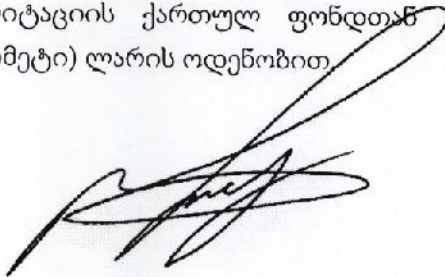 იტაციის ქართულ ფონდთან
მეტი) ლარის ოდენობით